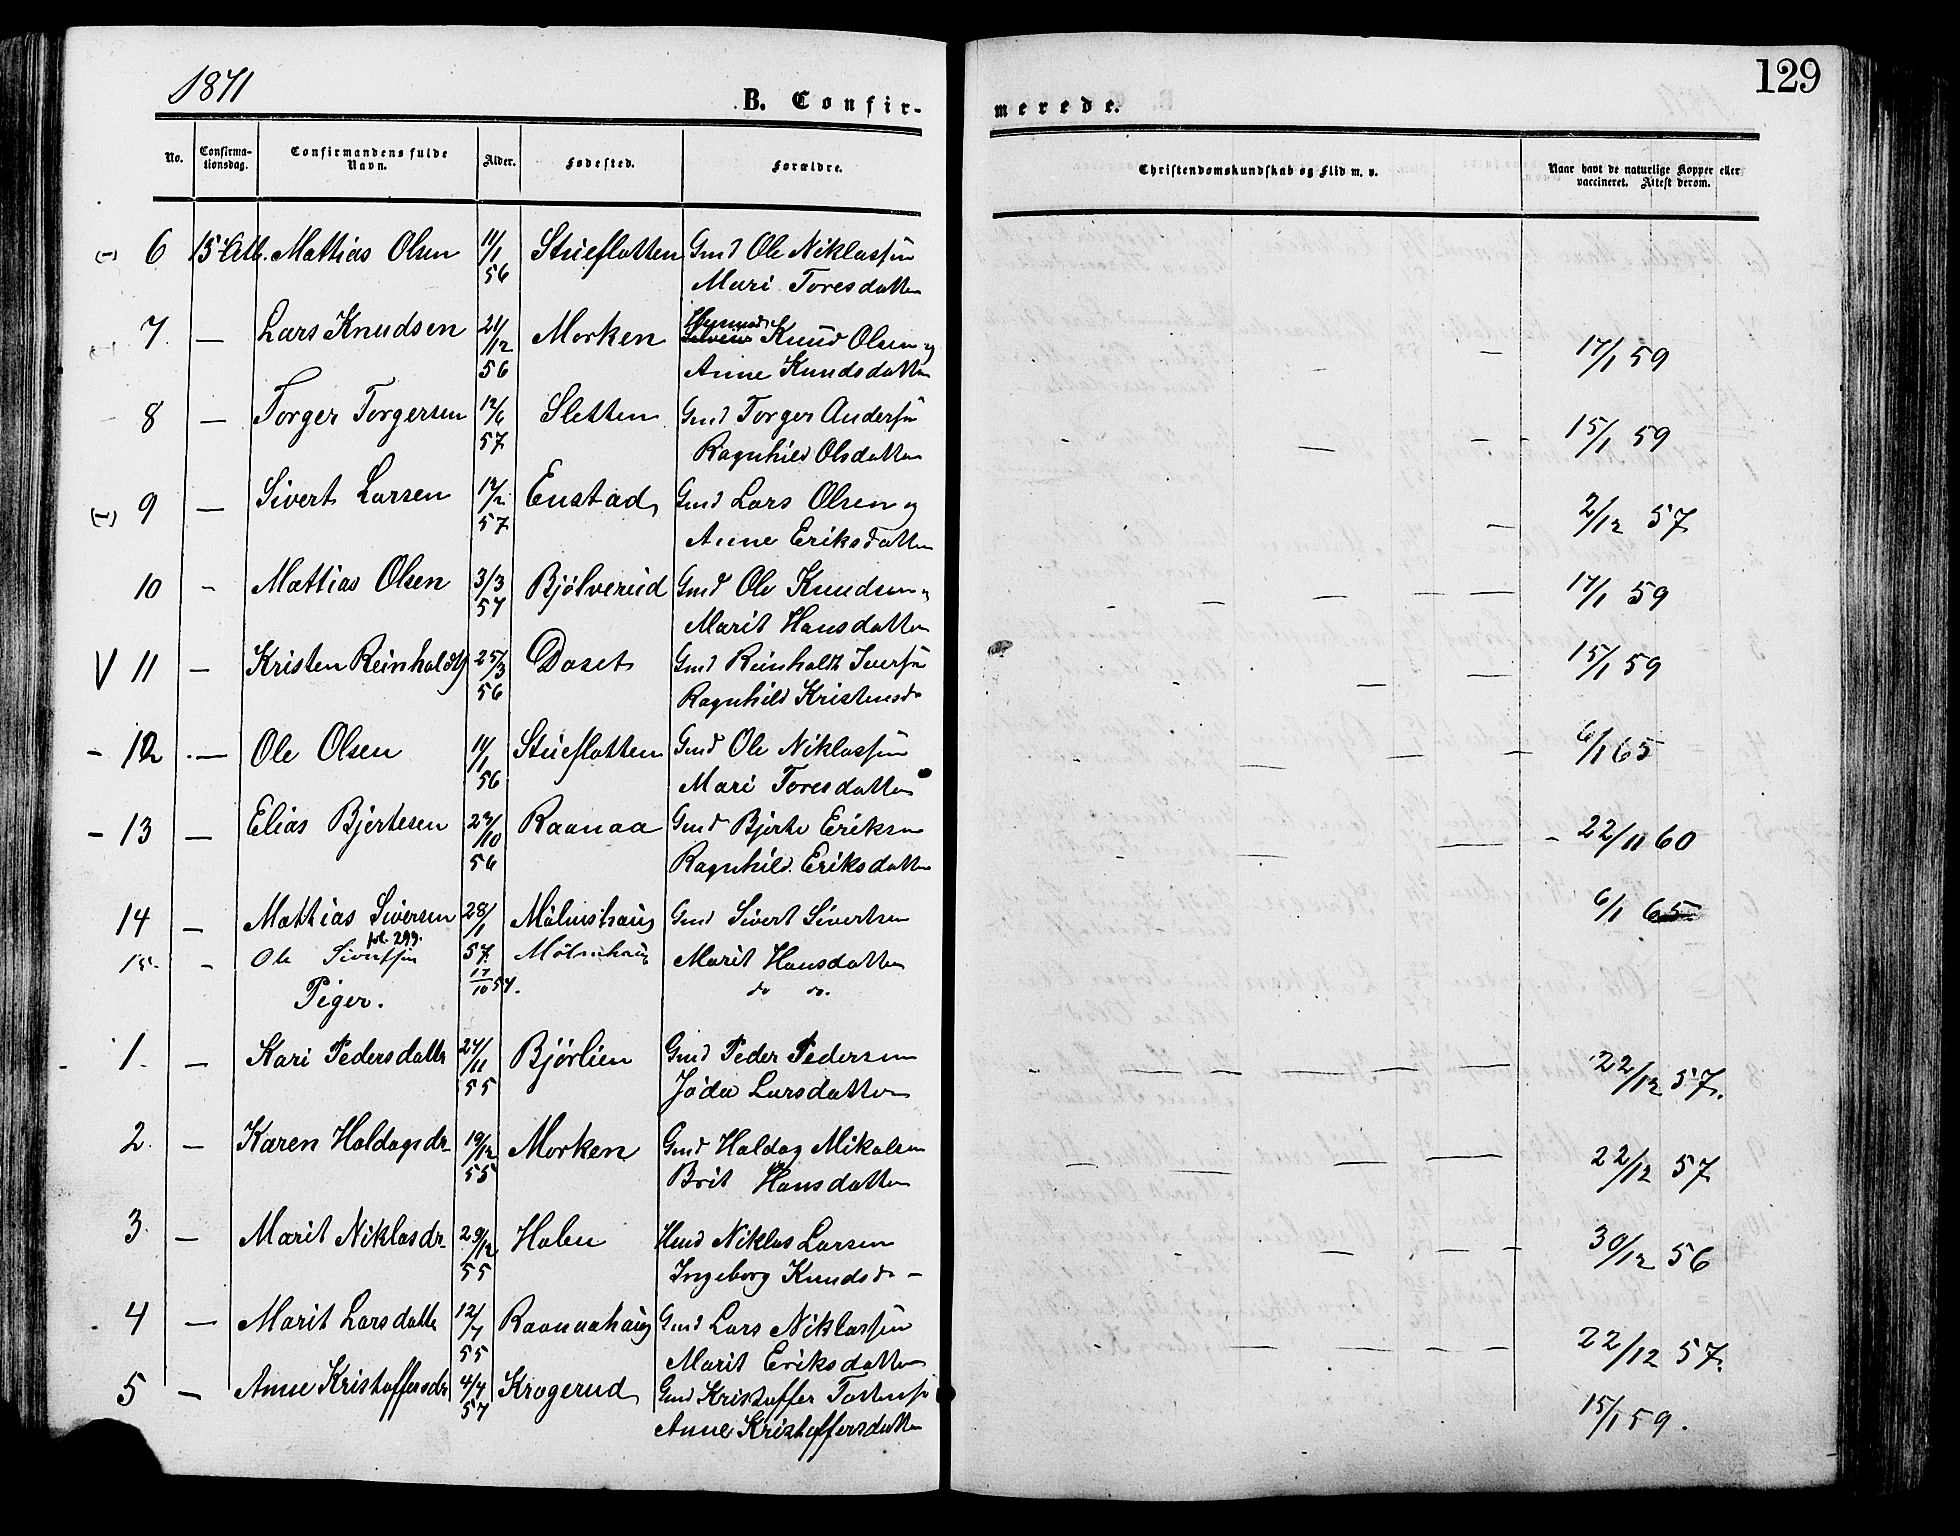 1871
129
B. Confir-
merede.
No.
Confirma-
tionsdag.
Confirmandens fulde
Navn.
Alder.
Fødested.
Forældre.
Christendomskundskab og Flid m. v.
Naar havt de naturlige Kopper eller
vaccineret. Attest derom.
6 15 Mattias Olsen 11/1 56 Stueflotten Gmd Ole Niklassøn
Mari Toresdatter
7 — Lars Knudsen 21/12 56 Morken Knud Olsen og — 17/1 59
Anne Knudsdatter
8 — Torger Torgersen 12/6 57 Sletten Gmd Torger Anderssøn — 15/1 59
Ragnhild Olsdatter
9 — Sivert Larsen 12/2 57 Enstad Gmd Lars Olsen og — 2/12 57
Anne Eriksdatter
10 - Mattias Olsen 3/3 57 Bjølverud Gmd Ole Knudsen og — 17/1 59
Marit Hansdatter
V 11 — Kristen Reinholdts 25/3 56 Doset Gmd Reinholdt Iversøn — 15/1 59
Ragnhild Kristensdr
- 12 — Ole Olsen 11/1 56 Stueflotten Gmd Ole Niklassøn — 6/1 65
Mari Toresdatter
- 13 — Elias Bjertesen 29/10 56 Raanaa Gmd Bjerte Eriksen — 22/11 60
Ragnhild Eriksdatter
14 — Mattias Siversen 28/1 57 Mølmshaug Gmd Sivert Sivertsen 6/1 65
fol. 299.
15. - Ole Sivertsøn 17/10 54. Mølmshaug Marit Hansdatter
do do.
Piger.
1. — Kari Pedersdatter 24/11 55 Bjørlien Gmd Peder Pedersen — 22/12 57.
Joda Larsdatter
2. — Karen Haldogsdr 19/12 55 Morken Gmd Haldog Mikalsen — 22/12 57
Brit Hansdatter
3. — Marit Niklasdr 29/12 55 Holen Hmd Niklas Larsen — 30/12 56
Ingeborg Knudsdr —
4 — Marit Larsdatter 12/7 55 Raanaahaug Gmd Lars Niklassøn — 22/12 57.
Marit Eriksdatter
5 — Anne Kristoffersdr 4/4 57 Krogerud Gmd Kristoffer 15/1 59.
Anne Kristoffersdatter